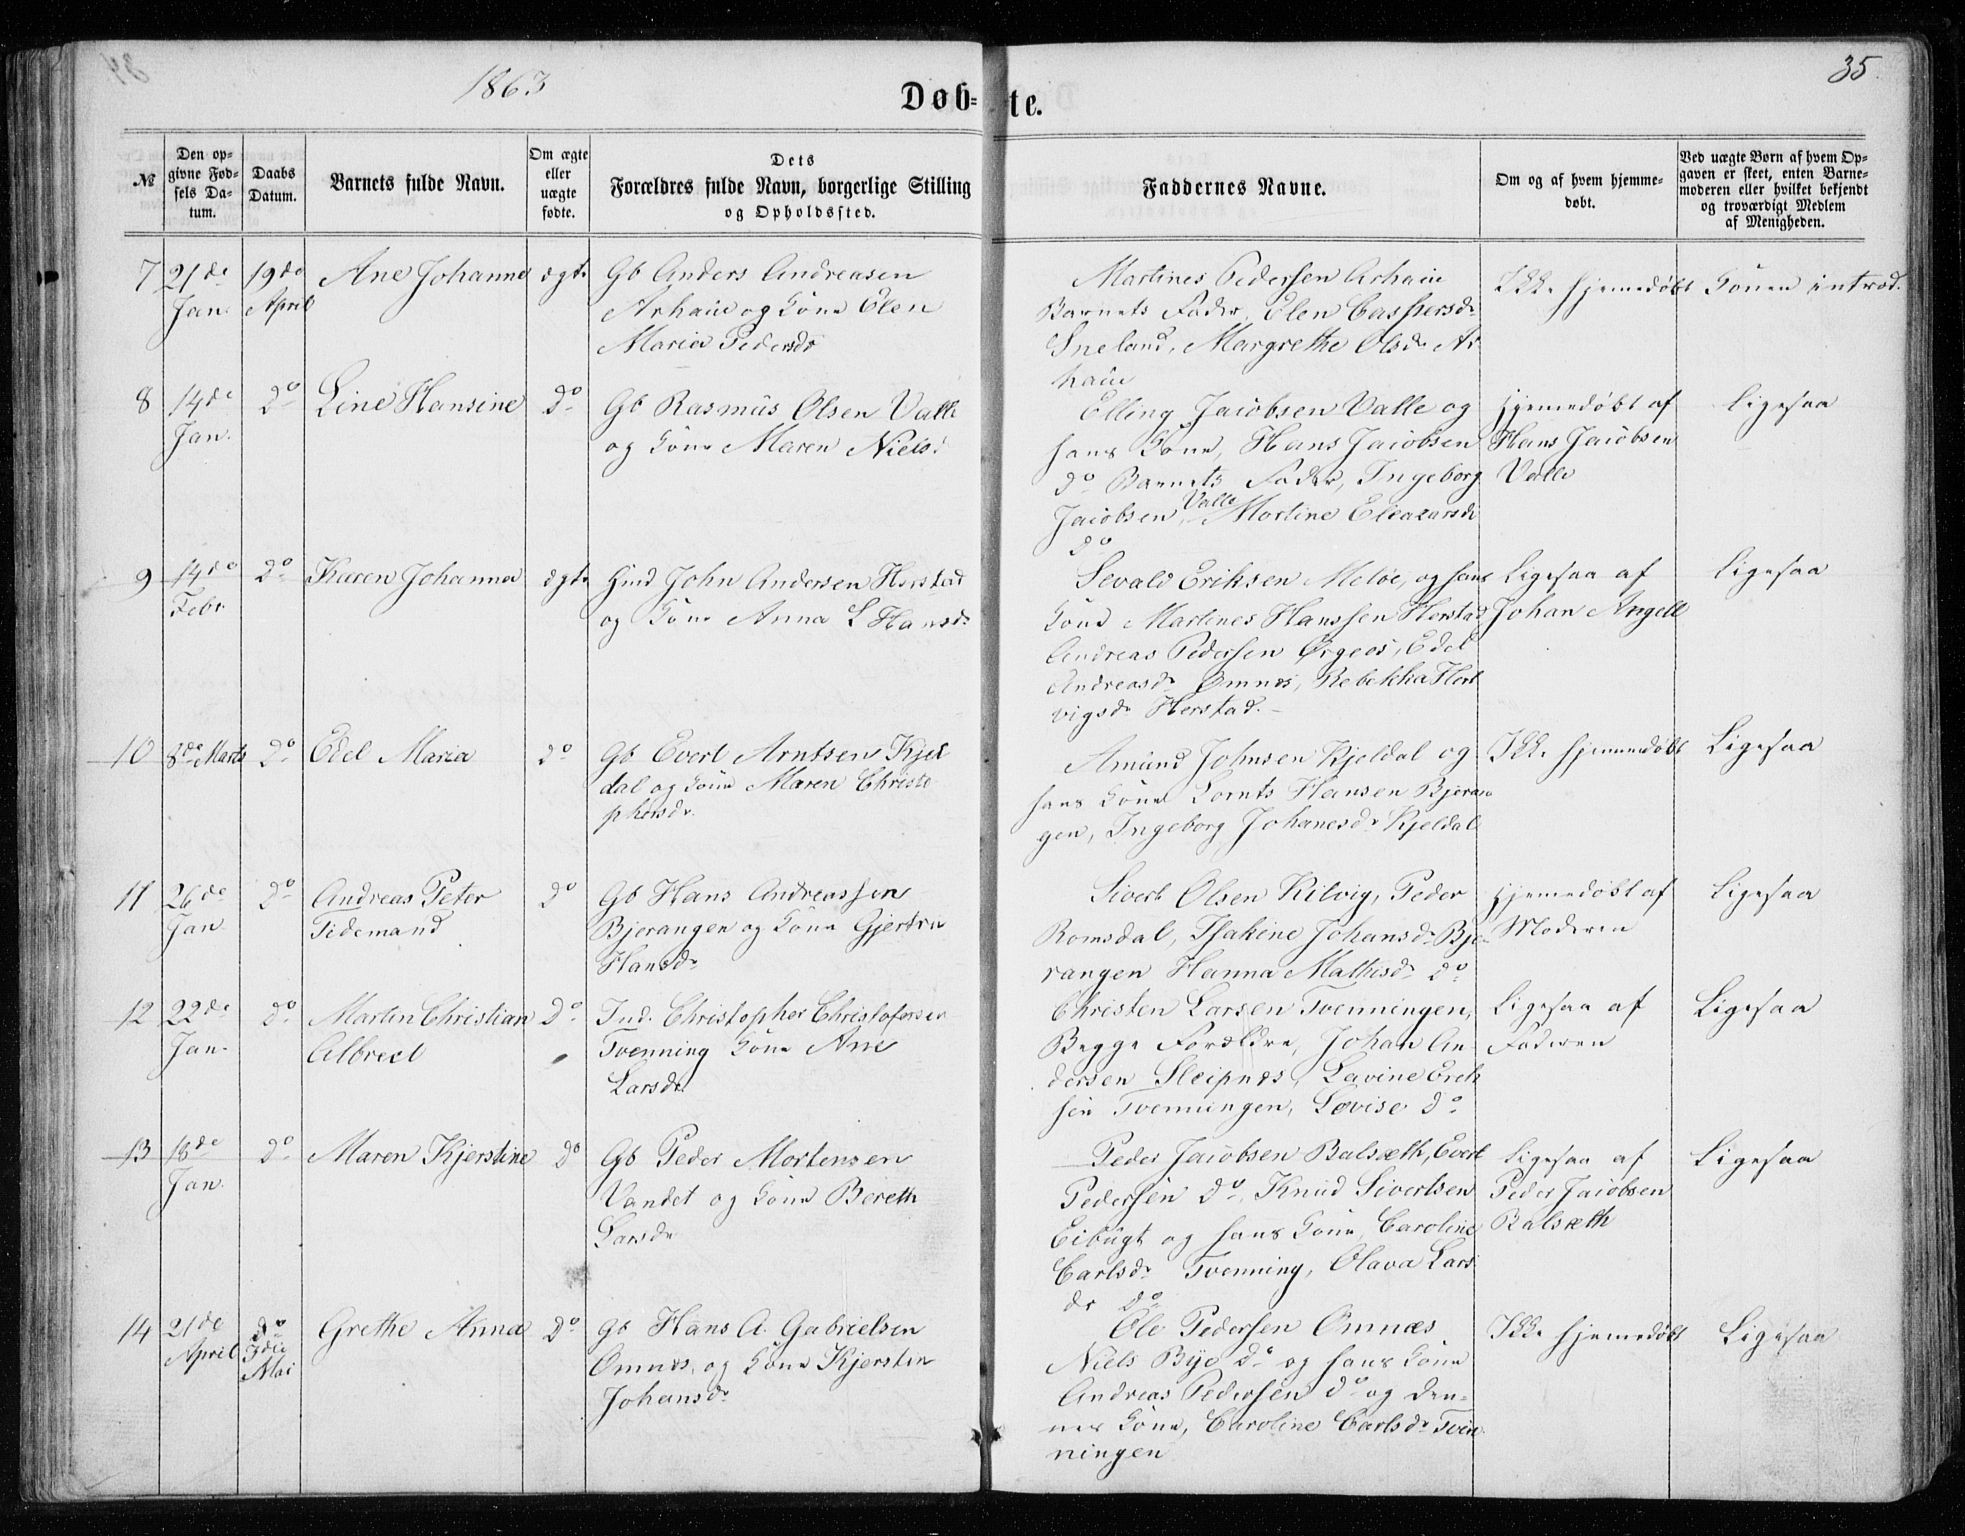 34
1863
Døb=te.
35.
№
Den op=
givne Fød=
sels Da=
tum.
Daabs
Datum.
Barnets fulde Navn.
Om ægte
eller
uægte
fødte.
Dets
Forældres fulde Navn, borgerlige Stilling
og Opholdssted.
Faddernes Navne.
Om og af hvem hjemme=
døbt.
Ved uægte Børn af hvem Op=
gaven er skeet, enten Barne=
moderen eller hvilket bekjendt
og troværdigt Medlem
af Menigheden.
7 21de Jan. 19de April Ane Johanne ægte
Gb Anders Andreasen
Arhaug og Kone Elen
Maria Pedersdr
Martines Pedersen Arhaug
Barnets Fader, Elen Caspersdr
Sneland, Margrethe Olsdr Ar
haug
Ikke hjemedøbt
Konen introd.
8 14de Jan. Do Line Hansine Do
Gb Rasmus Olsen Valle
og Kone Maren Niels
Elling Jacobsen Valle og
hans Kone, Hans Jacobsen
Do Barnets Fader, Ingeborg
Jacobsen Valle Martine Eleazarsdr
Do
Hjemedøbt af
Hans Jacobsen
Valle
Ligesaa
9 14de Febr Do Karen Johanna ægte
Hmd John Andersen Horstad
og Kone Anna L Hansdr
Sevald Eriksen Meløe, og hans
Kone Martines Hanssen Horstad
Andreas Pedersen Ørgeos, Edel
Andreasdr Omnes, Rebekka Hart
vigsdr Horstad.
Ligesaa af
Johan Angell
Ligesaa
10 8de Marts Do Edel Maria Do
Gb Evert Arntsen Kjel
dal og Kone Maren Christo
phersdr.
Amund Johnsen Kjeldal og
hans Kone Kornts Hansen Bjeran
gen, Ingeborg Johanesdr Kjeldal
Ikke hjemmedøbt
Ligesaa
11 26de Jan Do Andreas Peter
Tidemand Do
Gb Hans Andreassen
Bjerangen og Kone Gjertru
Hansdr
Sivert Olsen Kilvig, Peder
Romsdal, Isakine Johansdr Bje-
rangen Hanna Mathisdr Do
Hjemedøbt af
Moderen
Ligesaa
12 22de Jan. Do Martin Christian
Albrect Do
Ind. Christopher Christofersen
Tvenning Kone Ane
Larsdr
Christen Larsen Tvenningen,
Begge Forældre, Johan An-
dersen Sleipnes, Lavine Erik
sen Tvenningen, Lovise Do
Ligesaa af
Faderen
Ligesaa
13 18de Jan. Do Maren Kjerstine Do
Gb Peder Mortensen
Vandet og Kone Bereth
Larsdr
Peder Jacobsen Balsæth, Evert
Pedersen Do, Knud Sivertsen
Eibugt og hans Kone, Caroline
Carlsdr Tvenning, Olava Lars
dr Do
Ligesaa af
Peder Jacobsen
Balsæth
Ligesaa
14 21de April Do
3die
Mai Grethe Anna Do
Gb Hans A. Gabrielsen
Omnes, og Kone Kjersten
Johansdr
Ole Pedersen Omnæs
Niels Bye Do og hans Kone
Andreas Pedersen Do og den-
nes Kone, Caroline Carlsdr Tven
ningen
Ikke hjemedøbt
Ligesaa